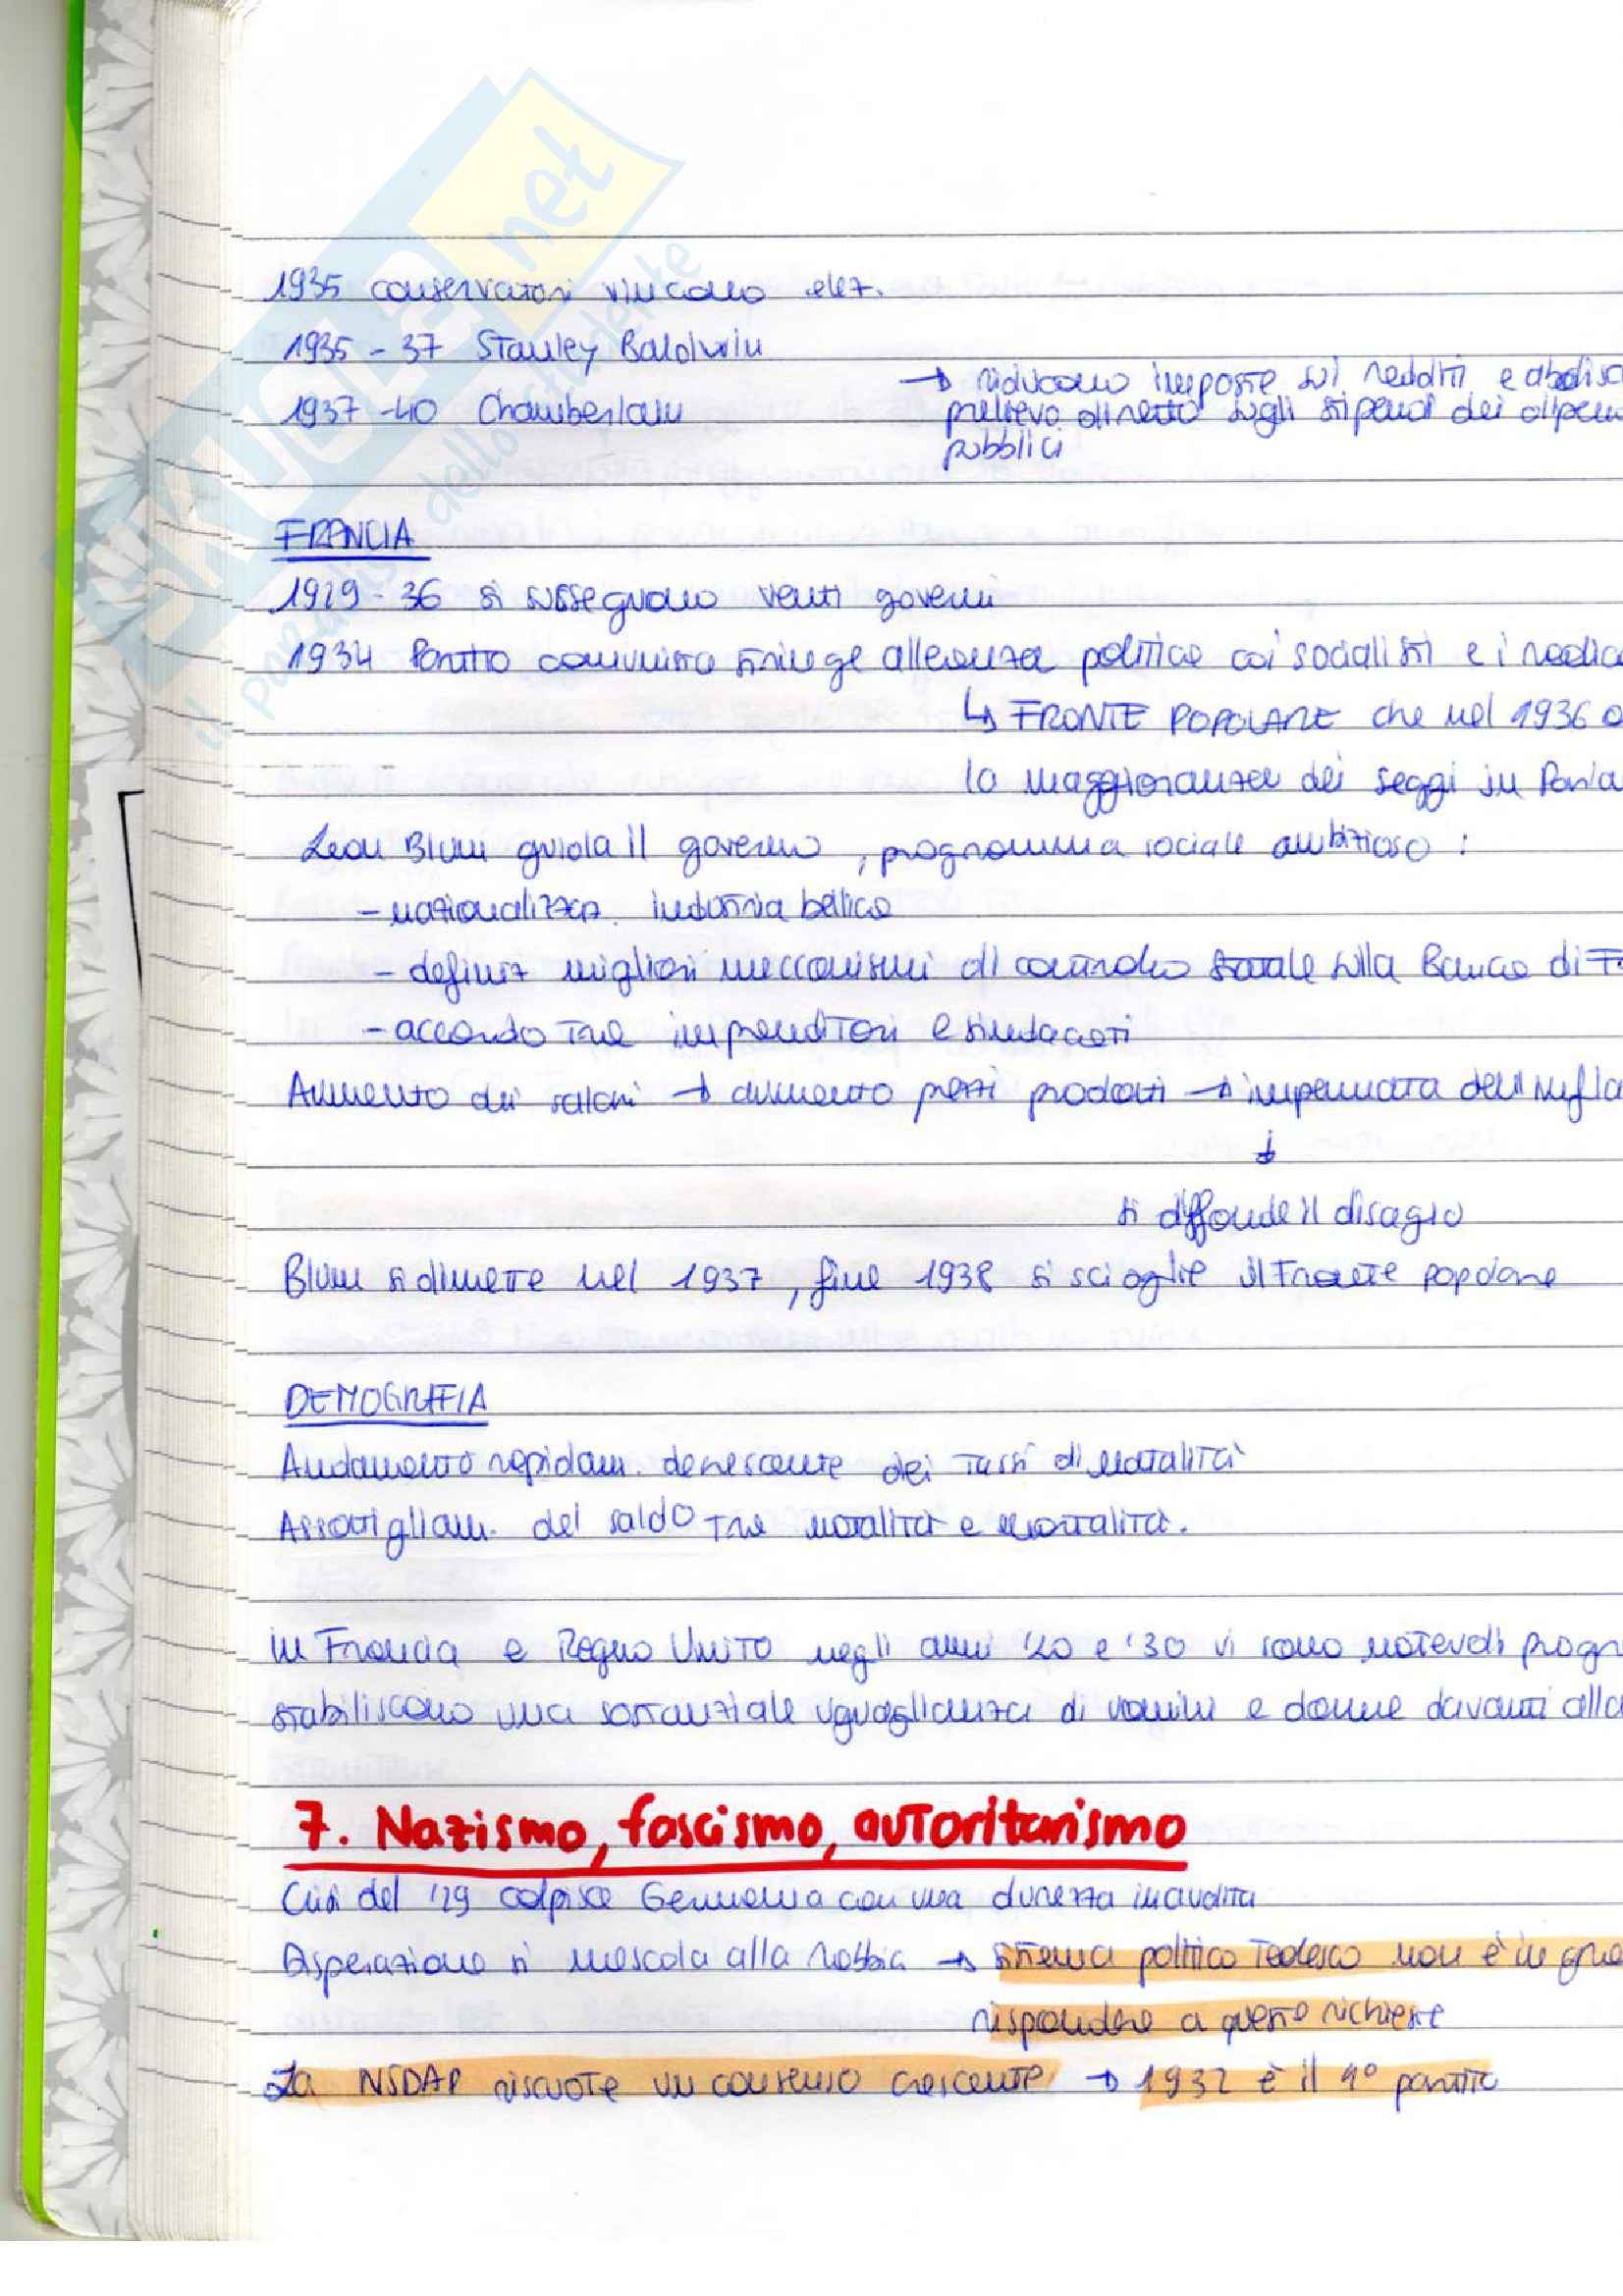 SKUOLA.net
il paradiso dello studente
1935 conservatori vincono elez.
1935-37 Stanley Baldwin
1937-40 Chamberlain
→ riducono imposte sui redditi e abolisc
prelievo diretto sugli stipendi dei dipen
pubblici
FRANCIA
1929-36 si susseguono venti governi
1934 Partito comunista stringe alleanza politica coi socialisti e i radica
↳ FRONTE POPOLARE che nel 1936 o
la maggioranza dei seggi in Parla
Leon Blum guida il governo, programma sociale ambizioso:
- nazionalizzaz. industria bellica
- definiz migliori meccanismi di controllo statale sulla Banca di F
- accordo tra imprenditori e sindacati
Aumento dei salari → aumento prezzi prodotti → impennata dell'infla
↓
si diffonde il disagio
Blum si dimette nel 1937, fine 1938 si scioglie il Fronte popolare
DEMOGRAFIA
Andamento rapidam. decrescente dei tassi di natalità
Assottigliam. del saldo tra natalità e mortalità.
in Francia e Regno Unito negli anni '20 e '30 vi sono notevoli progr
stabiliscono una sostanziale uguaglianza di uomini e donne davanti alla
7. Nazismo, fascismo, autoritarismo
Crisi del '29 colpisce Germania con una durezza inaudita
Disperazione si mescola alla rabbia → sistema politico tedesco non è in gra
rispondere a queste richieste
La NSDAP riscuote un consenso crescente → 1932 è il 1° partito